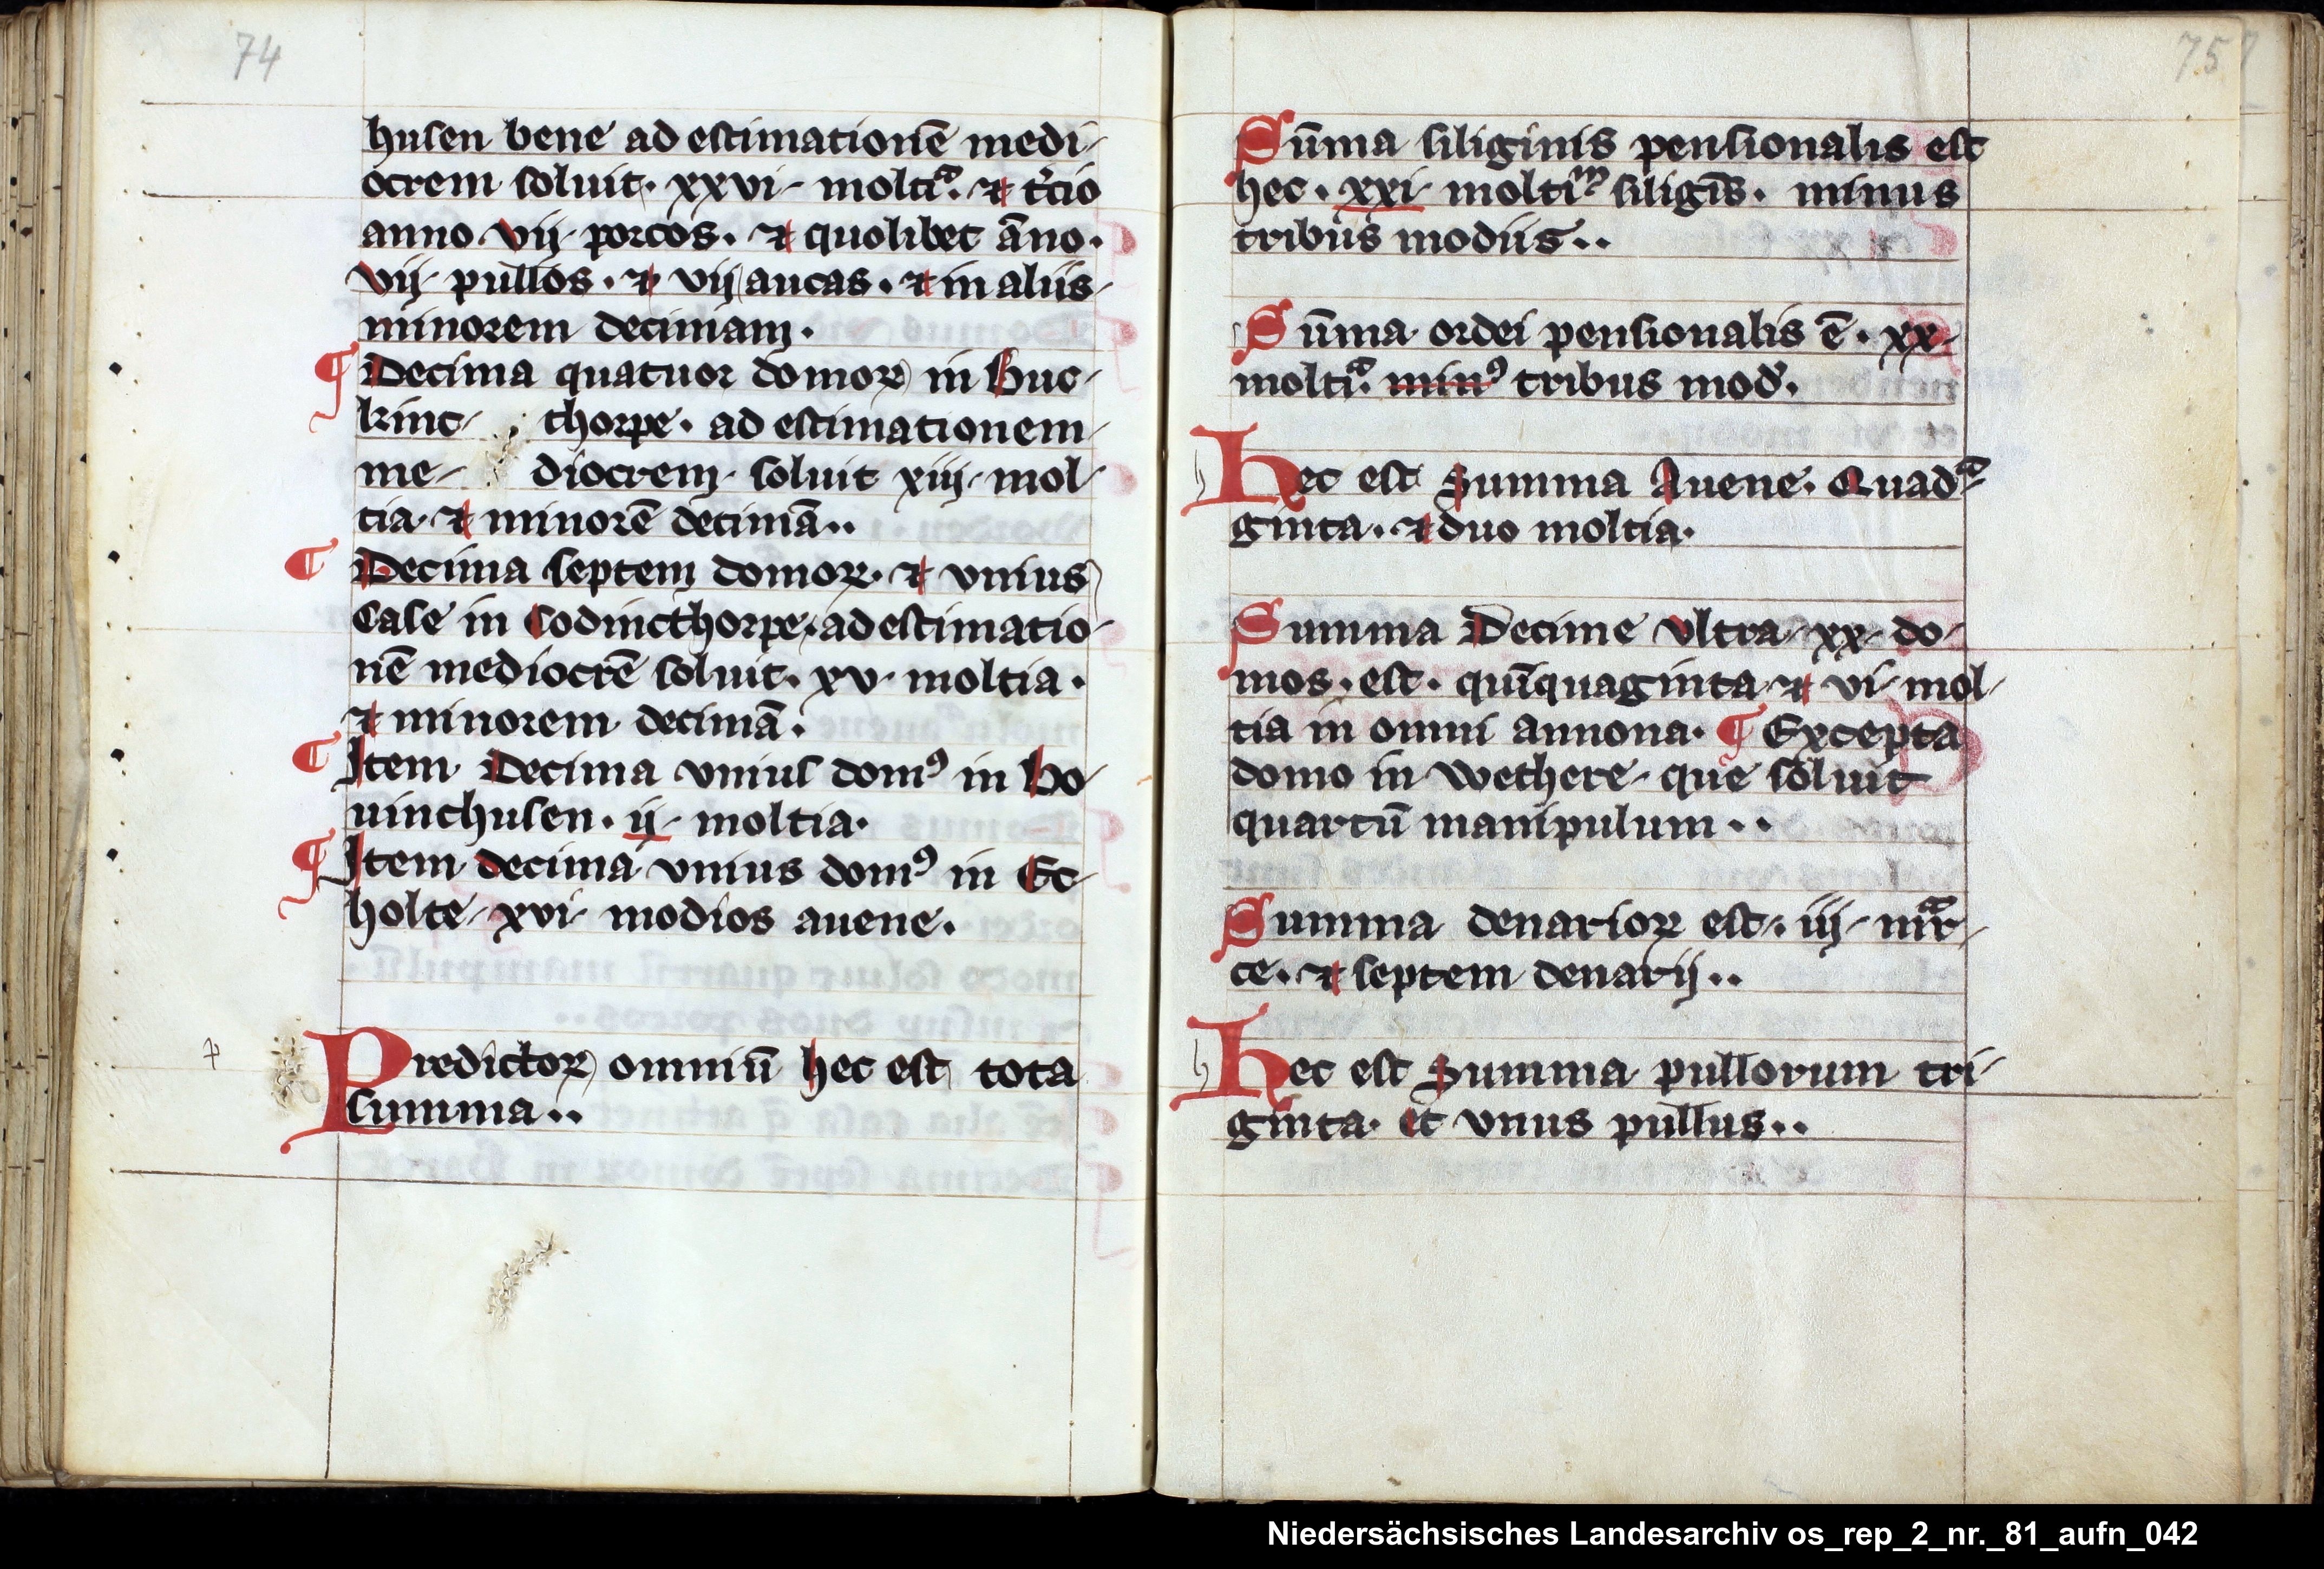 74
husen bene ad estimationē medi-
ocrem soluit. xxvi. moltiᵃ. ⁊ t̓cio
anno vij. porcos. ⁊ quolibet āno.
vij. pullos. ⁊ vij aucas. ⁊ in aliis
minorem decimam.
¶ Decima quatuor domoꝝ in Buc-
kinc- thorpe. ad estimationem
me- diocrem soluit xiij. mol-
tia. ⁊ minorē decimā..
¶ Decima septem domoꝝ. ⁊ vnius
Case in Codincthorpe. ad estimatio-
nē mediocrē soluit. xv. moltia.
⁊ minorem decimā.
¶ Item Decima vnius domꝰ in Bo-
uinchusen. ij. moltia.
¶ Item decima vnius domꝰ in Ec-
holte. xvi. modios auene.
Predictoꝝ omniū hec est tota
summa..
75
Sūma siliginis pensionalis est
hec. xxi. moltiᵐ siligīs. minus
tribus modiis..
Sūma ordei pensionalis ē. xx.
moltiᵃ. minꝰ tribus mod̓.
Hec est Summa Auene. Quadᵃ-
ginta. ⁊ duo moltia.
Summa Decime vltra. xx. do-
mos. est. quīquaginta ⁊ vi. mol-
tia in omni annona. ¶ Excepta
domo in wethere. que soluit
quartū manipulum..
Summa denarioꝝ est. iij. mᵃr-
ce. ⁊ septem denarij..
Hec est Summa pullorum tri-
ginta. et vnus pullus..
Niedersächsisches Landesarchiv os_rep_2_nr._81_aufn_042